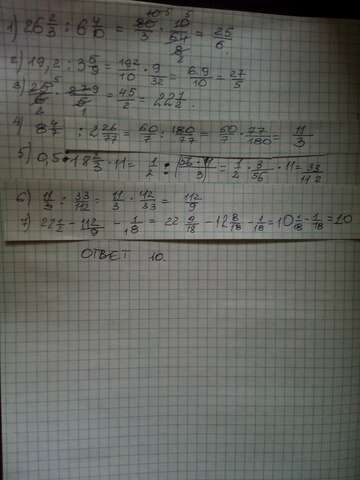 1) 26 2/3 : 6 4/10 = 80/3 · 10/64 = 25/6
2) 19,2 : 3 5/9 = 192/10 · 9/32 = 6·9/10 = 27/5
3) 25/6 · 27/5 = 45/2 = 22 1/2
4) 8 4/7 : 2 26/77 = 60/7 : 180/77 = 60/7 · 77/180 = 11/3
5) 0,5 : 18 2/3 · 11 = 1/2 : 56·11/3 = 1/2 · 3/56 · 11 = 33/112
6) 11/3 : 33/112 = 11/3 · 112/33 = 112/9
7) 22 1/2 - 112/9 - 1/18 = 22 9/18 - 12 8/18 - 1/18 = 10 1/18 - 1/18 = 10
ОТВЕТ 10.